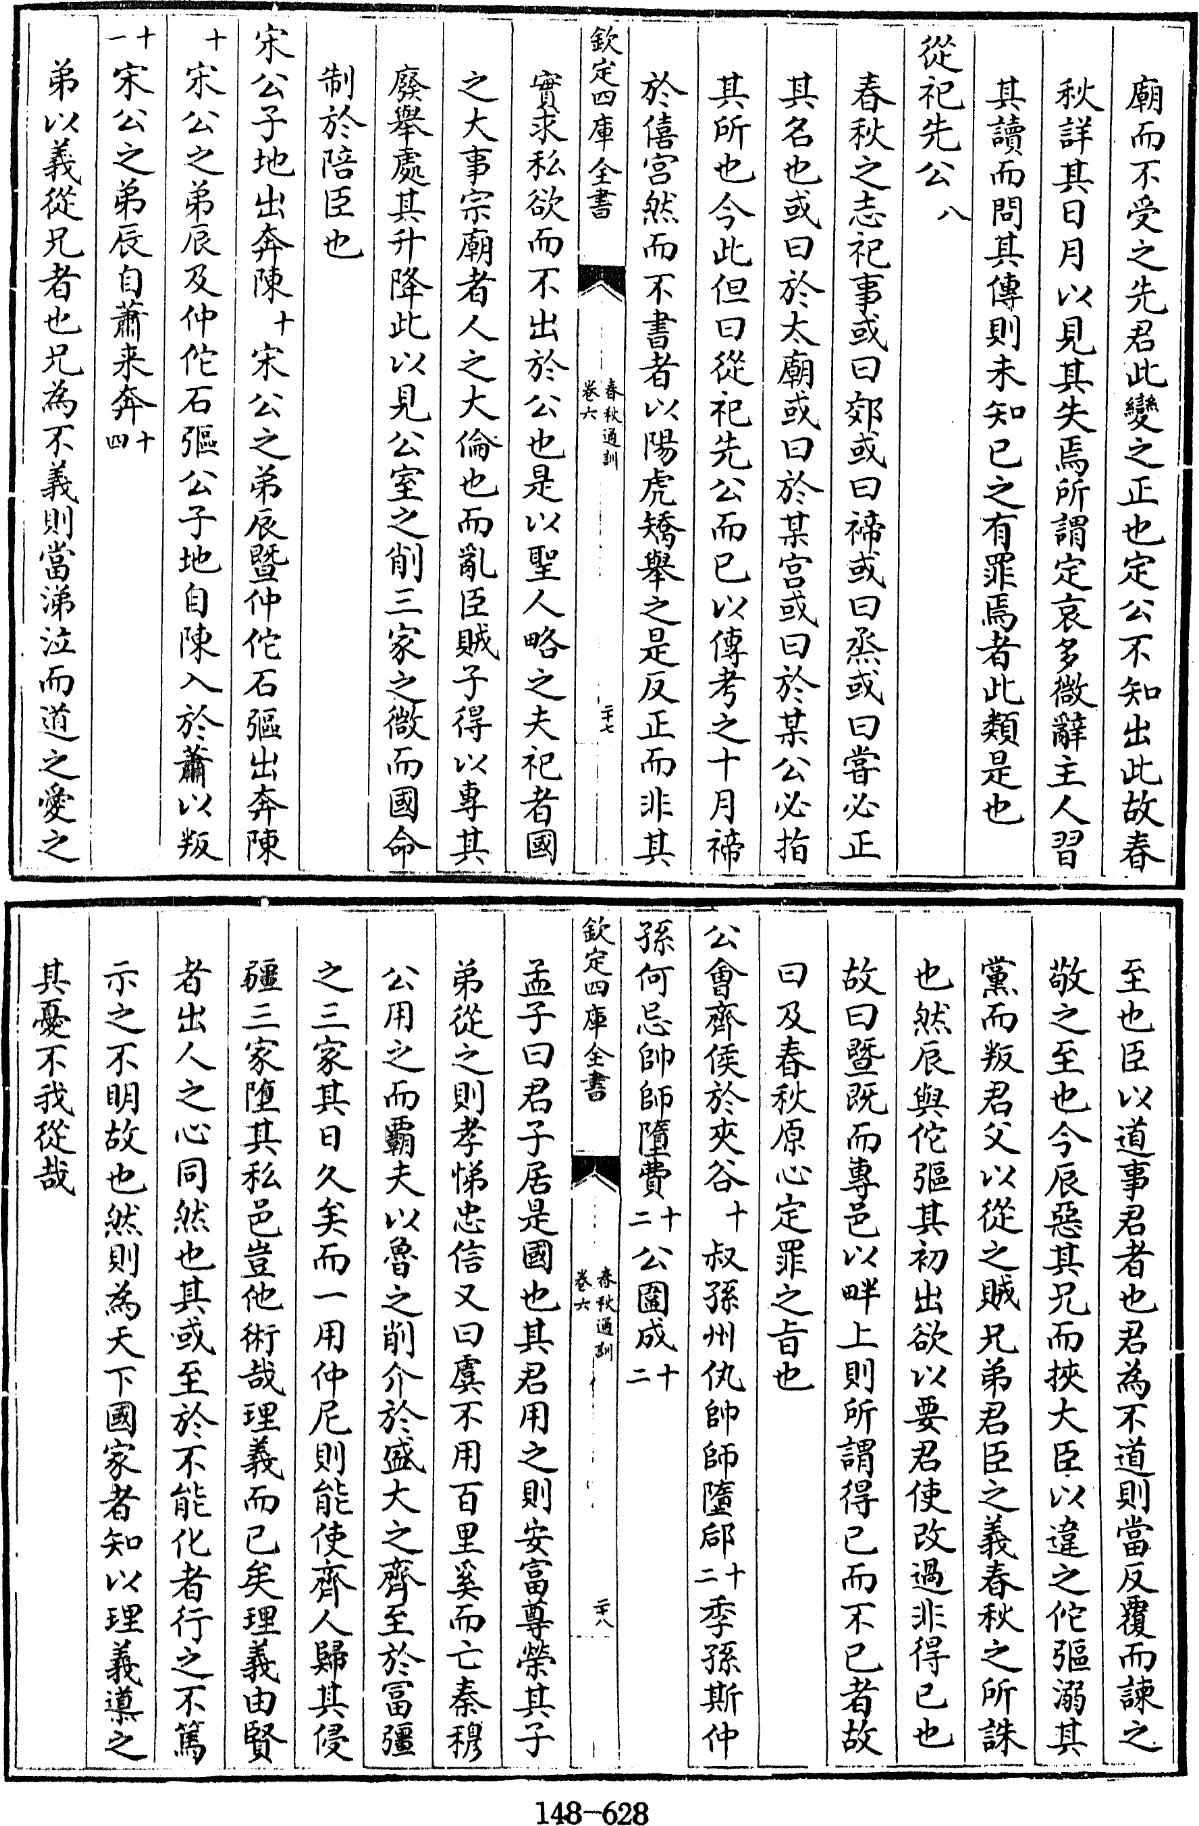 廟而不受之先君此變之正也定公不知出此故春
秋詳其日月以見其失焉所謂定哀多微辭主人習
其讀而問其傳則未知已之有罪焉者此類是也
從祀先公八
春秋之志祀事或曰郊或曰禘或曰烝或曰嘗必正
其名也或曰於太廟或曰於某宮或曰於某公必指
其所也今此但曰從祀先公而已以傳考之十月禘
於僖宮然而不書者以陽虎矯舉之是反正而非其
欽定四庫全書
春秋通訓
卷六
二十七
實求私欲而不出於公也是以聖人略之夫祀者國
之大事宗廟者人之大倫也而亂臣賊子得以專其
廢舉處其升降此以見公室之削三家之微而國命
制於陪臣也
宋公子地出奔陳十宋公之弟辰暨仲佗石彄出奔陳
十宋公之弟辰及仲佗石彄公子地自陳入於蕭以叛
十一宋公之弟辰自蕭来奔十四
弟以義從兄者也兄為不義則當涕泣而道之愛之
至也臣以道事君者也君為不道則當反覆而諫之
敬之至也今辰惡其兄而挾大臣以違之佗彄溺其
黨而叛君父以從之賊兄弟君臣之義春秋之所誅
也然辰與佗彄其初出欲以要君使改過非得已也
故曰暨既而專邑以畔上則所謂得已而不已者故
曰及春秋原心定罪之旨也
公會齊侯於夾谷十叔孫州仇帥師墮郈十二季孫斯仲
孫何忌帥師墮費十二公圍成十二
欽定四庫全書
春秋通訓
卷六
二十八
孟子曰君子居是國也其君用之則安富尊榮其子
弟從之則孝悌忠信又曰虞不用百里奚而亡秦穆
公用之而霸夫以魯之削介於盛大之齊至於富彊
之三家其日久矣而一用仲尼則能使齊人歸其侵
疆三家墮其私邑豈他術哉理義而已矣理義由賢
者出人之心同然也其或至於不能化者行之不篤
示之不明故也然則為天下國家者知以理義遵之
其憂不我從哉
148-628